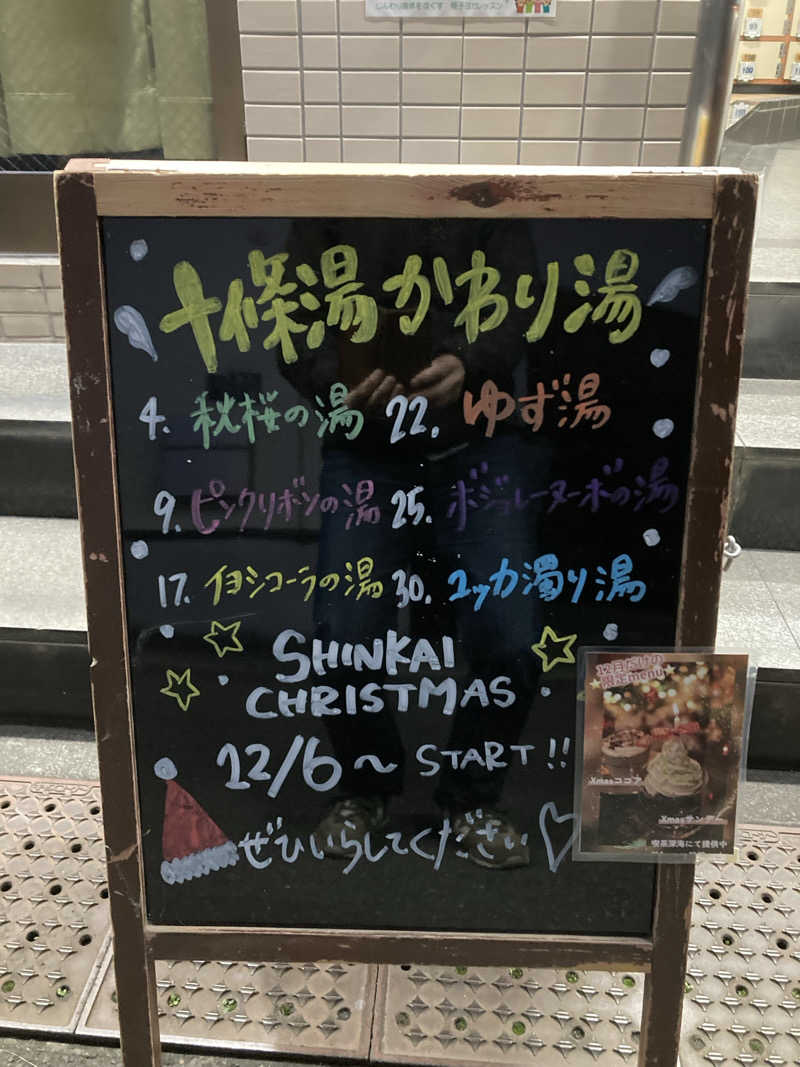 十條湯かわり湯
4. 秋桜の湯
22. ゆず湯
9. ピンクリボンの湯
25. ボジョレーヌーボの湯
17. イヨシコーラの湯
30. ユッカ濁り湯
SHINKAI
CHRISTMAS
12/6～ START!!
ぜひいらしてください♡
12月だけの
限定menu
Xmasココア
Xmasサンデー
喫茶深海にて提供中